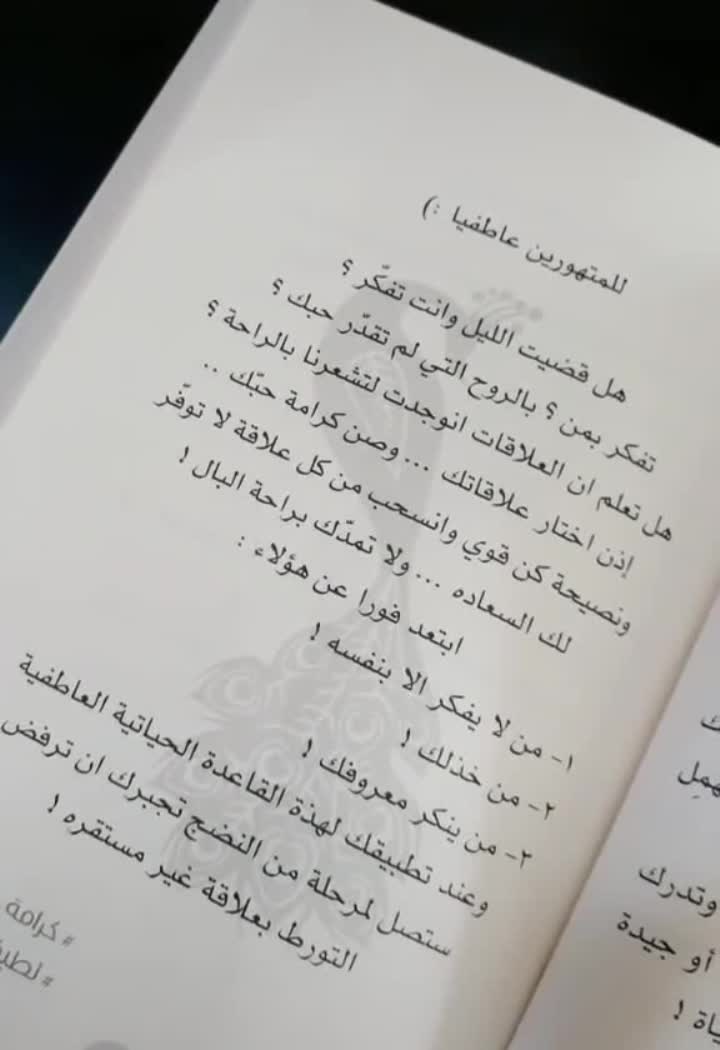 للمتهورين عاطفيا :)
هل قضيت الليل وانت تفكّر ؟
تفكر بمن ؟ بالروح التي لم تقدّر حبك ؟
هل تعلم ان العلاقات انوجدت لتشعرنا بالراحة ؟
إذن اختار علاقاتك ... وصن كرامة حبّك ..
ونصيحة كن قوي وانسحب من كل علاقة لا توفّر
لك السعاده ... ولا تمدّك براحة البال !
ابتعد فورا عن هؤلاء :
١- من لا يفكر الا بنفسه !
٢- من خذلك !
٣- من ينكر معروفك !
وعند تطبيقك لهذة القاعدة الحياتية العاطفية
ستصل لمرحلة من النضج تجبرك ان ترفض
التورط بعلاقة غير مستقره !
#كرامة
وتدرك
أو جيدة